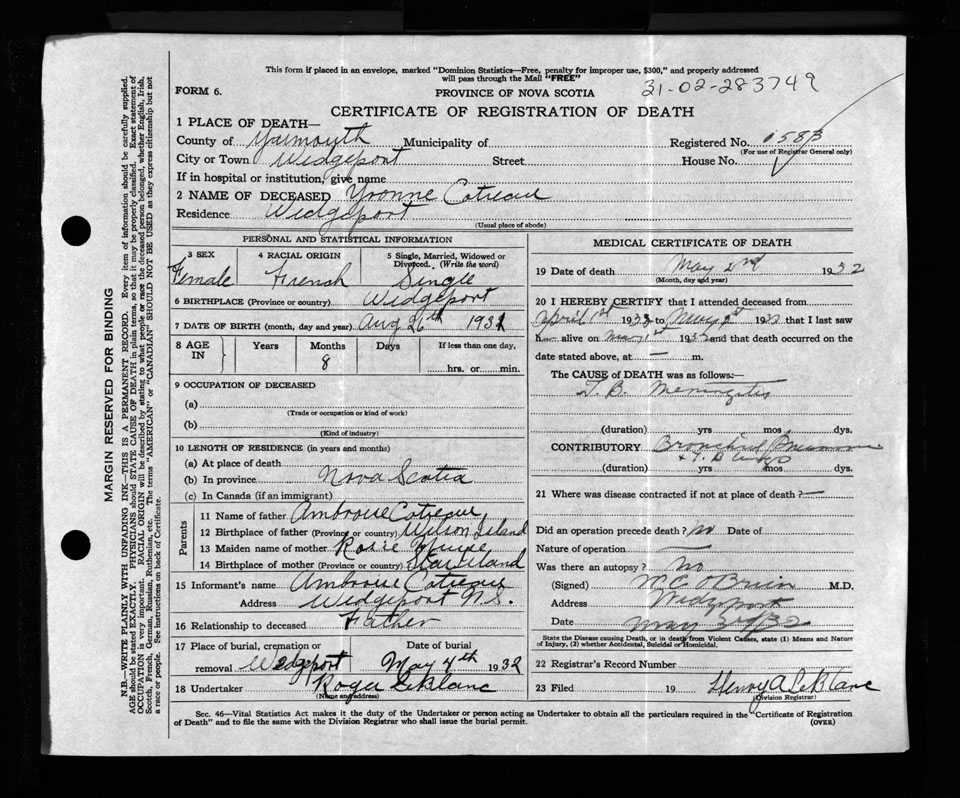 This form if placed in an envelope, marked "Dominion Statistics—Free, penalty for improper use, $300," and properly addressed
will pass through the Mail "FREE"
31-02-283749
FORM 6.
PROVINCE OF NOVA SCOTIA
CERTIFICATE OF REGISTRATION OF DEATH
1 PLACE OF DEATH—
County of Yarmouth Municipality of Registered No. 1583
(For use of Registrar General only)
City or Town Wedgeport Street House No.
If in hospital or institution, give name
2 NAME OF DECEASED Yvonne Cotreau
Residence Wedgeport
(Usual place of abode)
PERSONAL AND STATISTICAL INFORMATION
3 SEX Female
4 RACIAL ORIGIN French
5 Single, Married, Widowed or Divorced. (Write the word) Single
6 BIRTHPLACE (Province or country) Wedgeport
7 DATE OF BIRTH (month, day and year) Aug 26th 1931
8 AGE IN Years Months Days If less than one day,
8 hrs. or min.
9 OCCUPATION OF DECEASED
(a)
(Trade or occupation or kind of work)
(b)
(Kind of industry)
10 LENGTH OF RESIDENCE (in years and months)
(a) At place of death
(b) In province Nova Scotia
(c) In Canada (if an immigrant)
Parents
11 Name of father Ambroise Cotreau
12 Birthplace of father (Province or country) Wilson Island
13 Maiden name of mother Rosie Muise
14 Birthplace of mother (Province or country) Star Island
15 Informant's name Ambroise Cotreau
Address Wedgeport N.S.
16 Relationship to deceased Father
17 Place of burial, cremation or removal Wedgeport
Date of burial May 4th 1932
18 Undertaker Roger LeBlanc
(Name and address)
MEDICAL CERTIFICATE OF DEATH
19 Date of death May 2nd 1932
(Month, day and year)
20 I HEREBY CERTIFY that I attended deceased from
April 1st 1932 to May 2nd 1932 that I last saw
h alive on May 1st 1932 and that death occurred on the
date stated above, at — m.
The CAUSE of DEATH was as follows:—
T. B. Meningitis
(duration) yrs mos dys.
CONTRIBUTORY Bronchial
+ T. B
(duration) yrs mos dys.
21 Where was disease contracted if not at place of death? —
Did an operation precede death? No Date of
Nature of operation —
Was there an autopsy? No
(Signed) W C O'Brien M.D.
Address Wedgeport
Date May 3rd 1932
State the Disease causing Death, or in death from Violent Causes, state (1) Means and Nature
of Injury, (2) whether Accidental, Suicidal or Homicidal.
22 Registrar's Record Number
23 Filed 19 Henry A LeBlanc
(Division Registrar)
Sec. 46—Vital Statistics Act makes it the duty of the Undertaker or person acting as Undertaker to obtain all the particulars required in the "Certificate of Registration
of Death" and to file the same with the Division Registrar who shall issue the burial permit.
(OVER)
MARGIN RESERVED FOR BINDING
N.B.—WRITE PLAINLY WITH UNFADING INK—THIS IS A PERMANENT RECORD. Every item of information should be carefully supplied.
AGE should be stated EXACTLY. PHYSICIANS should STATE CAUSE OF DEATH in plain terms, so that it may be properly classified. Exact statement of
OCCUPATION is very important. RACIAL ORIGIN will be described by stating to what people or race the deceased person belonged, whether English, Irish,
Scotch, French, German, Russian, Ruthenian, etc. The terms "AMERICAN" or "CANADIAN" SHOULD NOT BE USED as they express citizenship but not
a race or people. See instructions on back of Certificate.